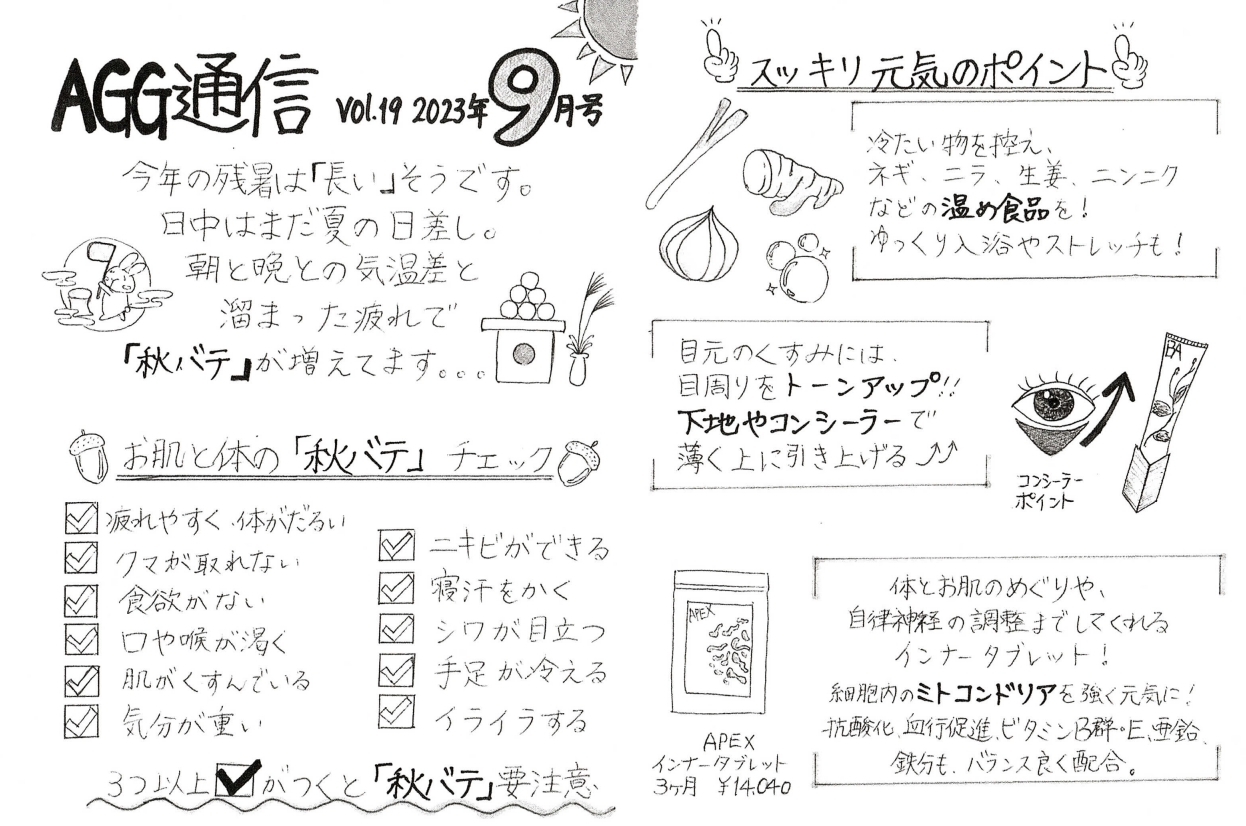 AGG通信 VOL.19 2023年9月号
今年の残暑は「長い」そうです。
日中はまだ夏の日差し。
朝と晩との気温差と
溜まった疲れで
「秋バテ」が増えてます。。。
お肌と体の「秋バテ」チェック
疲れやすく、体がだるい
クマが取れない
食欲がない
口や喉が渇く
肌がくすんでいる
気分が重い
ニキビができる
寝汗をかく
シワが目立つ
手足が冷える
イライラする
3つ以上がつくと「秋バテ」要注意
スッキリ元気のポイント
冷たい物を控え、
ネギ、ニラ、生姜、ニンニク
などの温め食品を!
ゆっくり入浴やストレッチも!
目元のくすみには、
目周りをトーンアップ!!
下地やコンシーラーで
薄く上に引き上げる
BA
コンシーラー
ポイント
体とお肌のめぐりや、
自律神経の調整までしてくれる
インナータブレット!
細胞内のミトコンドリアを強く元気に!
抗酸化、血行促進、ビタミンB群・E、亜鉛、
鉄分も、バランス良く配合。
APEX
APEX
インナータブレット
3ヶ月 ¥14.040